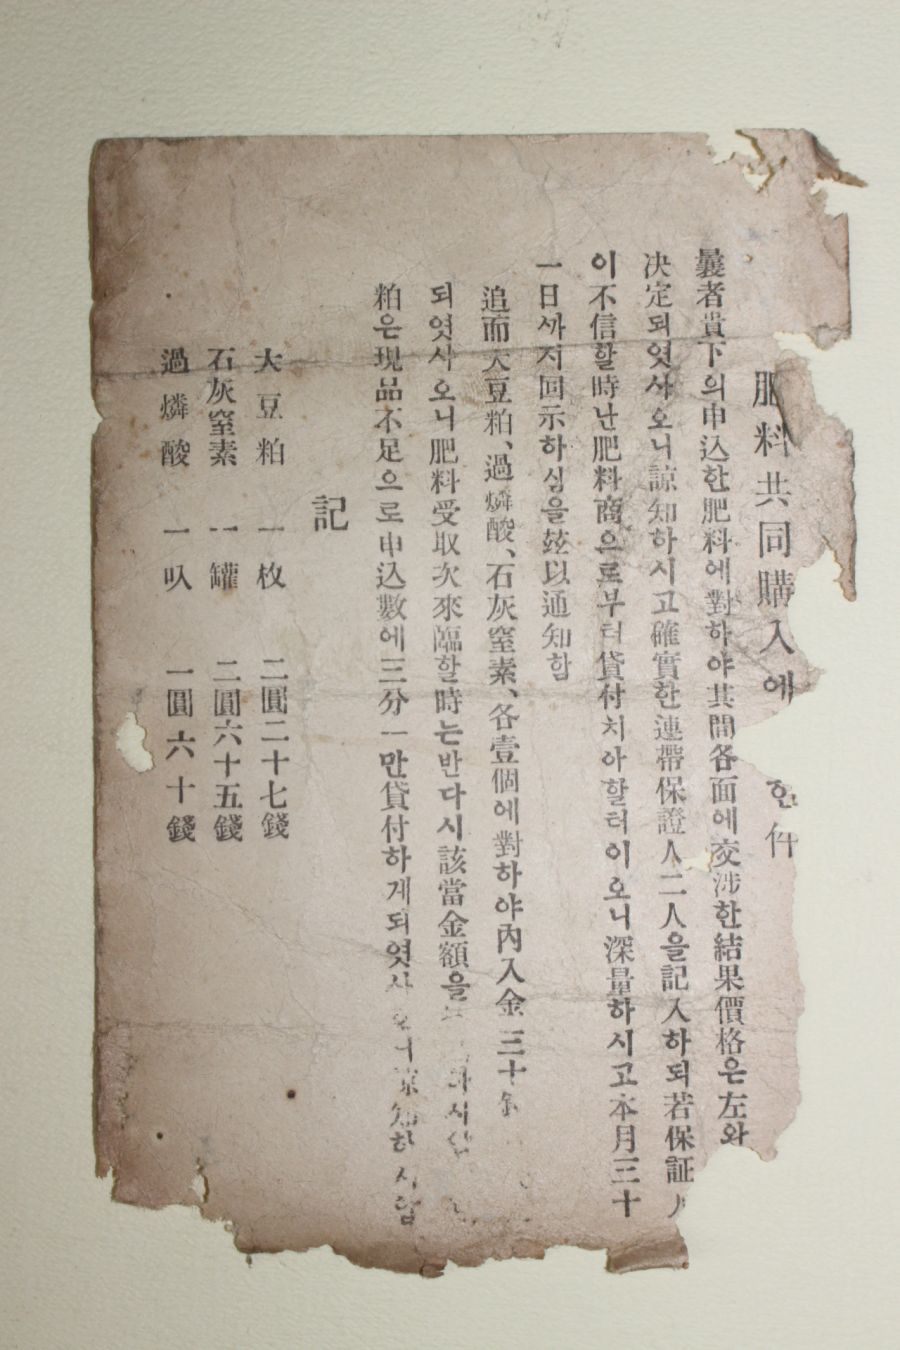 肥料共同購入에 한件
曩者貴下의申込한肥料에對하야其間各面에交涉한結果價格은左와
决定되엿사오니諒知하시고確實한連帶保證人二人을記入하되若保証人
이不信할時난肥料商으로부터貸付치아할터이오니深量하시고本月三十
一日ᄭᅡ지回示하심을玆以通知함
追而大豆粕、過燐酸、石灰窒素、各壹個에對하야內入金三十
되엿사오니肥料受取次來臨할時는반다시該當金額을
粕은現品不足으로申込數에三分一만貸付하게되엿사오니諒知하시압
記
大豆粕 一枚 二圓二十七錢
石灰窒素 一罐 二圓六十五錢
過燐酸 一叺 一圓六十錢